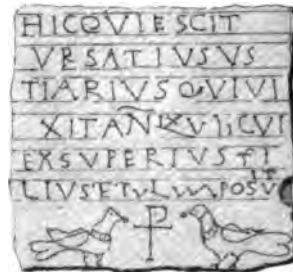 HICQVIESCIT
VRSATIVSVS
TIARIVSQVIVI
XITANIXVIICVI
EXSVPERIVSFI
LIVSETVLVMPOSVIT